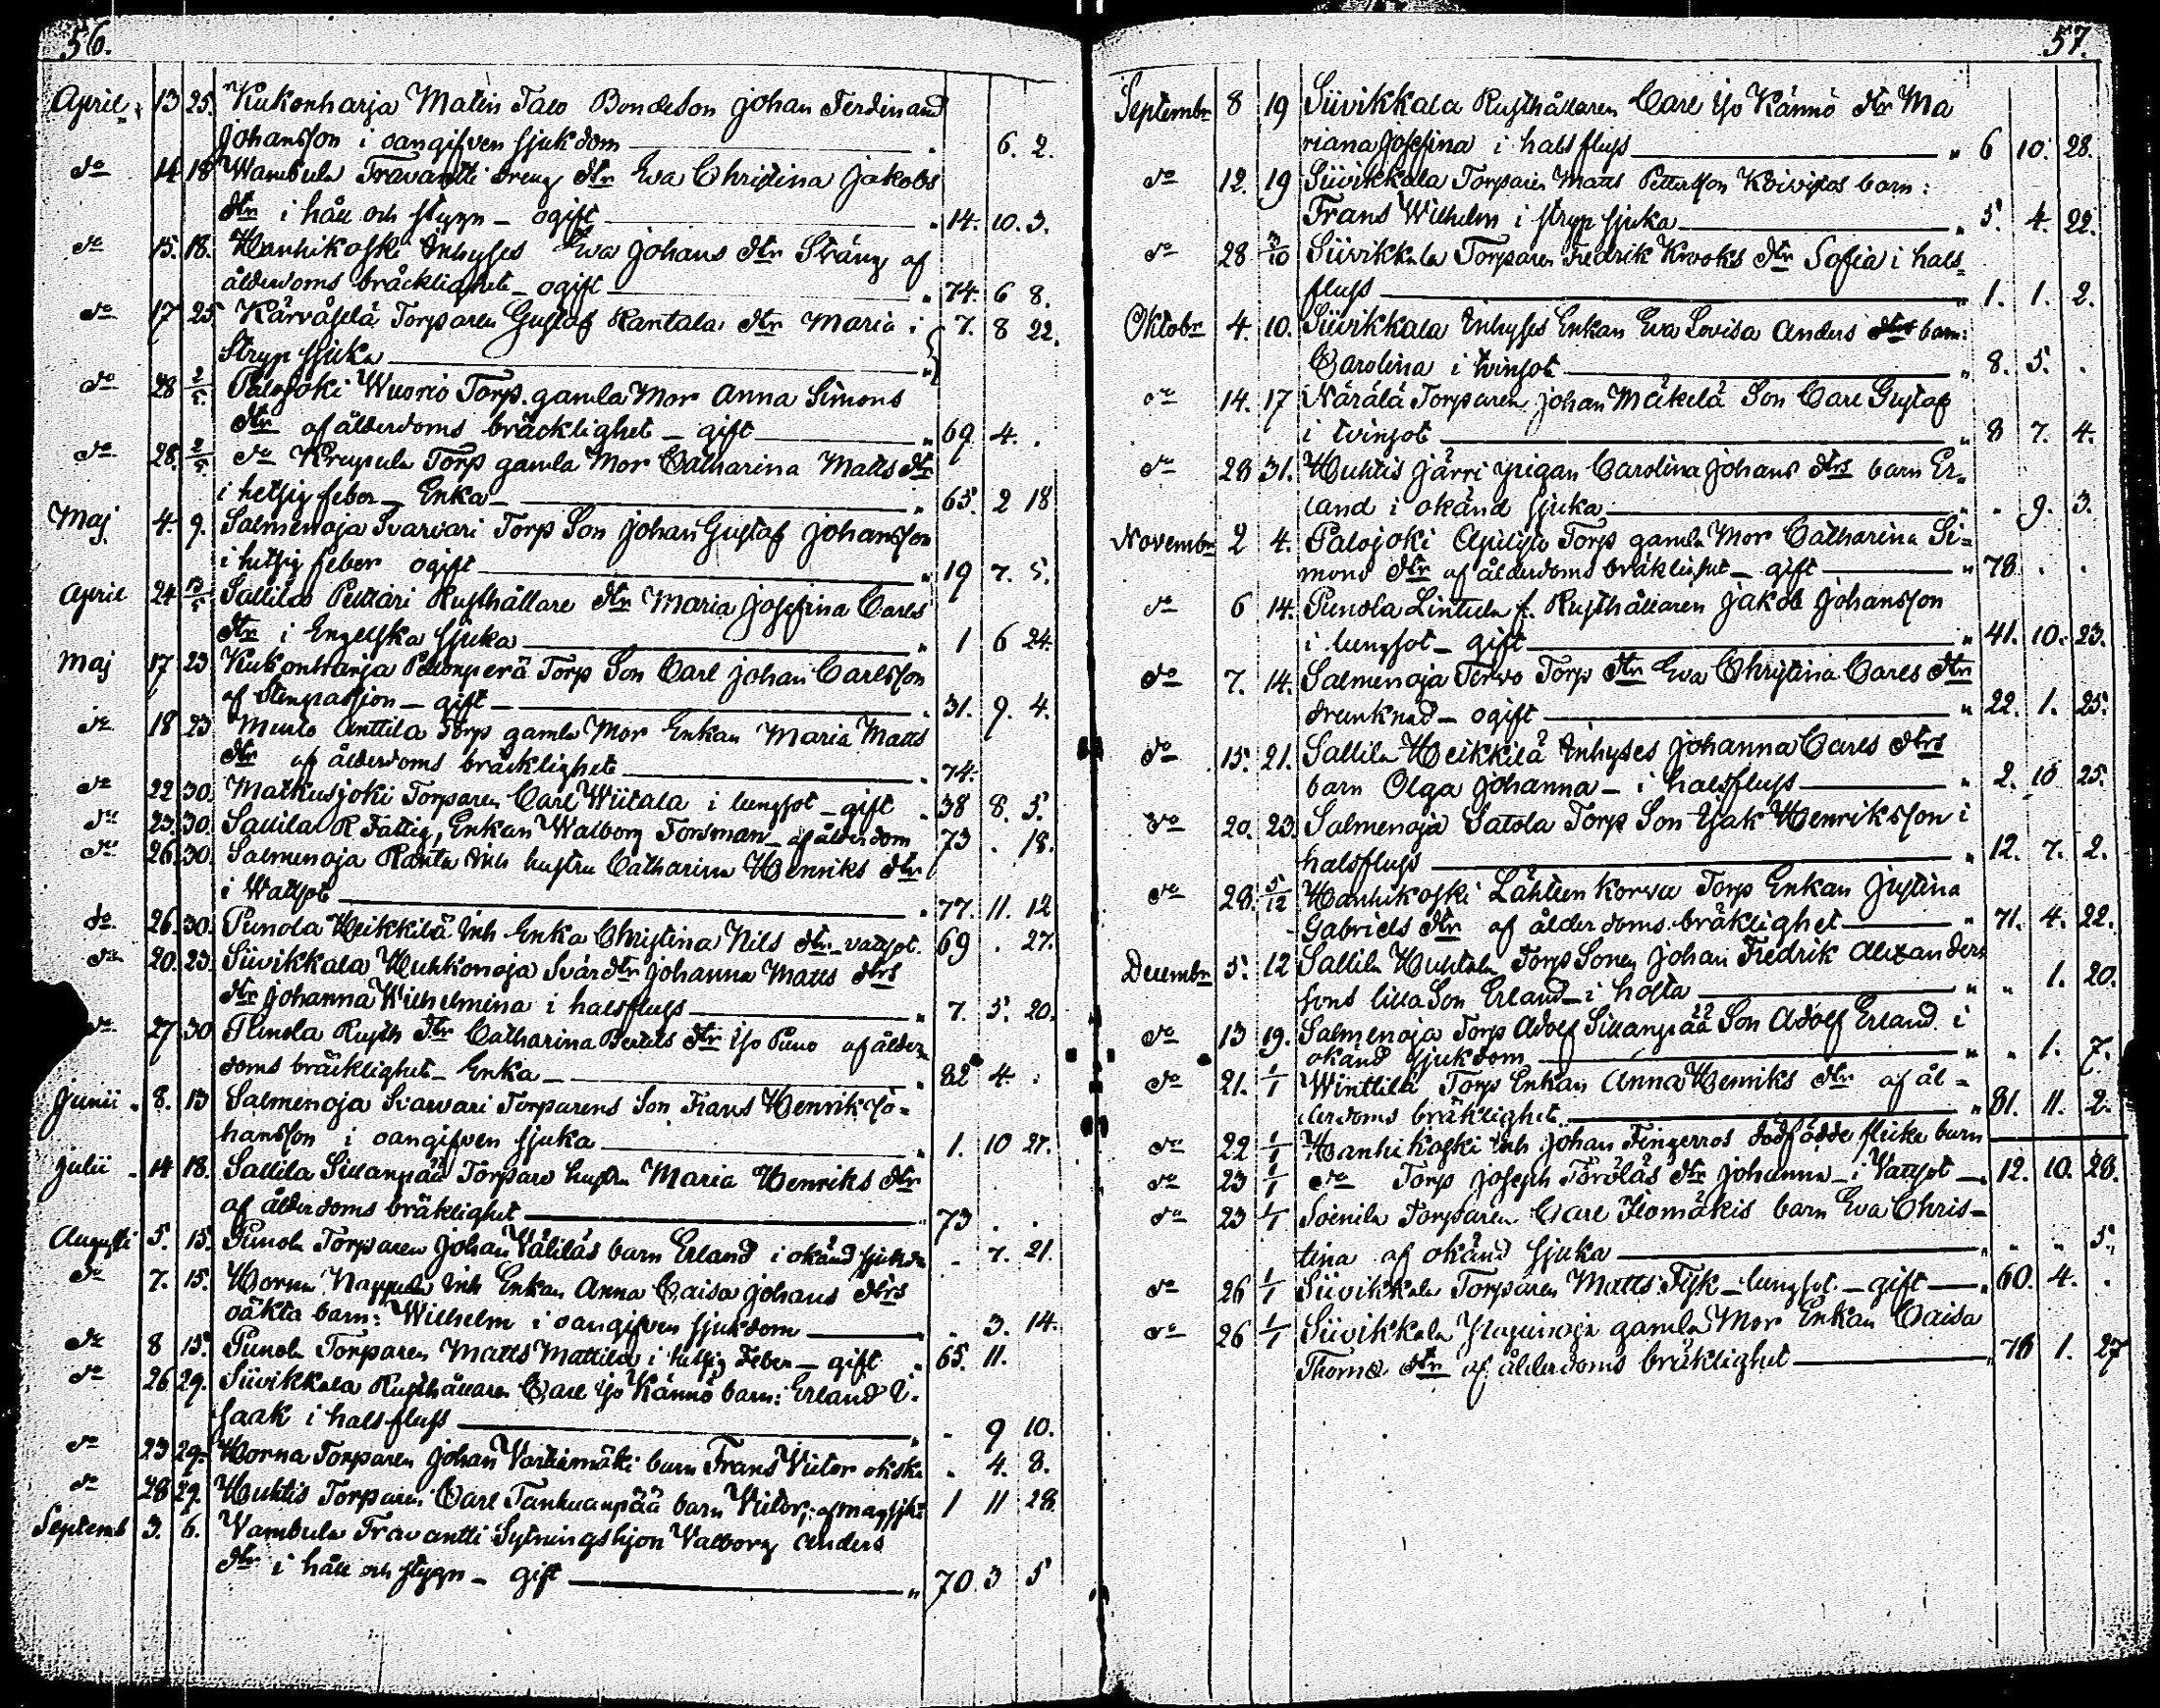 56.
April 13 25. Kukonharja Matin Talo Bondeson Johan Ferdinand
Johansson i oangifven sjukdom 6. 2.
do 14 18 Wambula Fravantti dreng dtr Eva Christina Jakobs
dtr i håll och stygn - ogift 14. 10. 3.
do 15. 18. Hanhikoski Inhyses Eva Johans dtr Sträng af
ålderdoms bräcklighet - ogift 74. 6 8.
do 17 25 Torparen Gustaf Rantala dtr Maria i 7. 8 22.
Stryp sjuka
do 28 2/5. Palojoki Wuorio Torp. gamla Mor Anna Simons
dtr af ålderdoms bräcklighet - gift 69 4. .
do 28. 2/5 do Torp gamla Mor Catharina Matts dtr
i hetsig feber - Enka 65 2 18
Maj 4. 9. Salmenoja Svarvari Torp Son Johan Gustaf Johansson
i hetsig feber ogift 19 7. 5.
April 24 13/5 Sallila Pettäri Rusthållare dtr Maria Josefina Carls
dtr i Engelska sjuka 1 6 24.
Maj 17 23 Kukonharja Pellonperä Torp Son Carl Johan Carlsson
af Stenpassion - gift 31. 9. 4.
do 18 23 Murto Anttila Torp gamla Mor Enkan Maria Matts
dtr af ålderdoms bräcklighet 74.
do 22 30. Matkusjoki Torparen Carl Wiitala i lungsot - gift 38 8. 5.
do 23. 30. Sallila R Fattig, Enkan Walborg Forsman - af ålderdom 73 . 18.
do 26. 30. Salmenoja Ranta Inh hustru Catharina Henriks dtr
i Watsot 77. 11. 12
do 26. 30. Punola Heikkilä Inh Enka Christina Nils dtr - vatsot. 69 . 27.
do 20. 23. Siivikkala Huhkonoja Svärdtr Johanna Matts dtrs
dtr Johanna Wilhelmina i halsfluss 7. 5. 20.
do 27 30 Punola Rusth dtr Catharina Bertils dtr Yso Puno af ålder-
doms bräcklighet - Enka - 82 4. .
Junii 8. 13 Salmenoja Svarvari Torparens Son Frans Henrik Jo=
hansson i oangifven sjuka 1. 10 27.
Julii 14 18. Sallila Sillanpää Torpare hustru Maria Henriks dtr
af ålderdoms bräklighet 73 . .
Augusti 5. 15. Punola Torparen Johan Väliläs barn Erland i okänd sjukdom - 7. 21.
do 7. 15. Horna Nappula Inh Enkan Anna Caisa Johans dtrs
oäkta barn: Wilhelm i oangifven sjukdom - 3. 14.
do 8 15. Punola Torparen Matts Mattila i hetsig Feber - gift 65. 11.
do 26 29. Siivikkala Rusthållaren Carl Yso Kännö barn: Erland I-
saak i halsfluss - 9 10.
do 23 29. Horna Torparen Johan Vartiamäki barn Frans Victor - 4. 8.
do 28 29. Huhtis Torparen Carl Tanhuanpää barn Victor, 1 11 28
Septemb 3. 6. Vambula Fravantti Sytningshjon Valborg Anders
dtr i håll och stygn - gift 70. 3 5
57.
Septembr 8 19 Siivikkala Rusthållaren Carl Yso Kännö dtr Ma
riana Josefina i halsfluss 6 10. 28.
do 12. 19 Siivikkala Torparen Matts Pettersson Koivistos barn:
Frans Wilhelm i stryp sjuka 5. 4. 22.
do 28 3/10 Siivikkala Torparen Fredrik Krooks dtr Sofia i hals=
fluss 1. 1. 2.
Oktobr 4. 10. Siivikkala Inhyses Enkan Eva Lovisa Anders dtrs barn:
Carolina i tvinsot 8. 5. .
do 14. 17 Närälä Torparen Johan Mäkelä Son Carl Gustaf
i tvinsot 8 7. 4.
do 28 31. Huhtis Järri pigan Carolina Johans dtrs barn Er-
land i okänd sjuka . 9. 3.
Novembr 2 4. Palojoki Torp gamla Mor Catharina Si=
mons dtr af ålderdoms bräklighet - gift 78 . .
do 6 14. Punola Lintula f. Rusthållaren Jakob Johansson
i lungsot - gift 41. 10. 23.
do 7. 14. Salmenoja Tervo Torp dtr Eva Christina Carls dtr
drunknad - ogift 22. 1. 25.
do 15. 21. Sallila Heikkilä Inhyses Johanna Carls dtrs
barn Olga Johanna - i halsfluss 2. 10 25.
do 20. 23. Salmenoja Satola Torp Son Isak Henriksson i
halsfluss 12. 7. 2.
do 28. 5/12 Hanhikoski Lähteenkorva Torp Enkan Justina
Gabriels dtr af ålderdoms bräklighet 71. 4. 22.
Decembr 5. 12 Sallila Huhtala Torp Sonen Johan Fredrik Alexanders
sons lilla Son Erland - i hosta " 1. 20.
do 13 19. Salmenoja Torp Adolf Sillanpää Son Adolf Erland i
okänd sjukdom " 1. 7.
do 21. 1/1 Winttilä Torp Enkan Anna Henriks dtr af ål=
derdoms bräklighet 81. 11. 2.
do 22 1/1 Hanhikoski Inh Johan Fingerroos dödfödde flicke barn
do 23 1/1 do Torp Joseph Töröläs dtr Johanna - i Vatsot 12. 10. 28.
do 23 1/1 Soinila Torparen Carl Isomäkis barn Eva Chris-
tina af okänd sjuka " " 5.
do 26 1/1 Siivikkala Torparen Matts Fisk - lungsot - gift 60. 4. .
do 26 1/1 Siivikkala gamla Mor Enkan Caisa
Thomæ dtr af ålderdoms bräklighet 78 1. 27